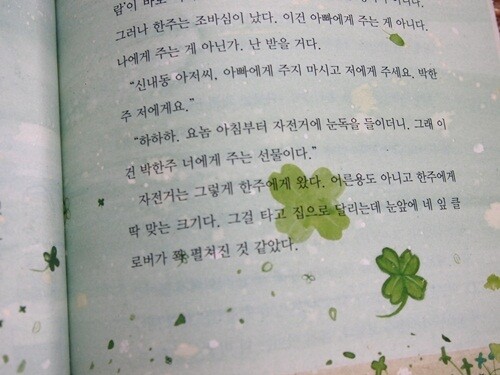 그러나 한주는 조바심이 났다. 이건 아빠에게 주는 게 아니다.
나에게 주는 게 아닌가. 난 받을 거다.
“신내동 아저씨, 아빠에게 주지 마시고 저에게 주세요. 박한
주 저에게요.”
“하하하. 요놈 아침부터 자전거에 눈독을 들이더니. 그래 이
건 박한주 너에게 주는 선물이다.”
자전거는 그렇게 한주에게 왔다. 어른용도 아니고 한주에게
딱 맞는 크기다. 그걸 타고 집으로 달리는데 눈앞에 네 잎 클
로버가 쫙 펼쳐진 것 같았다.